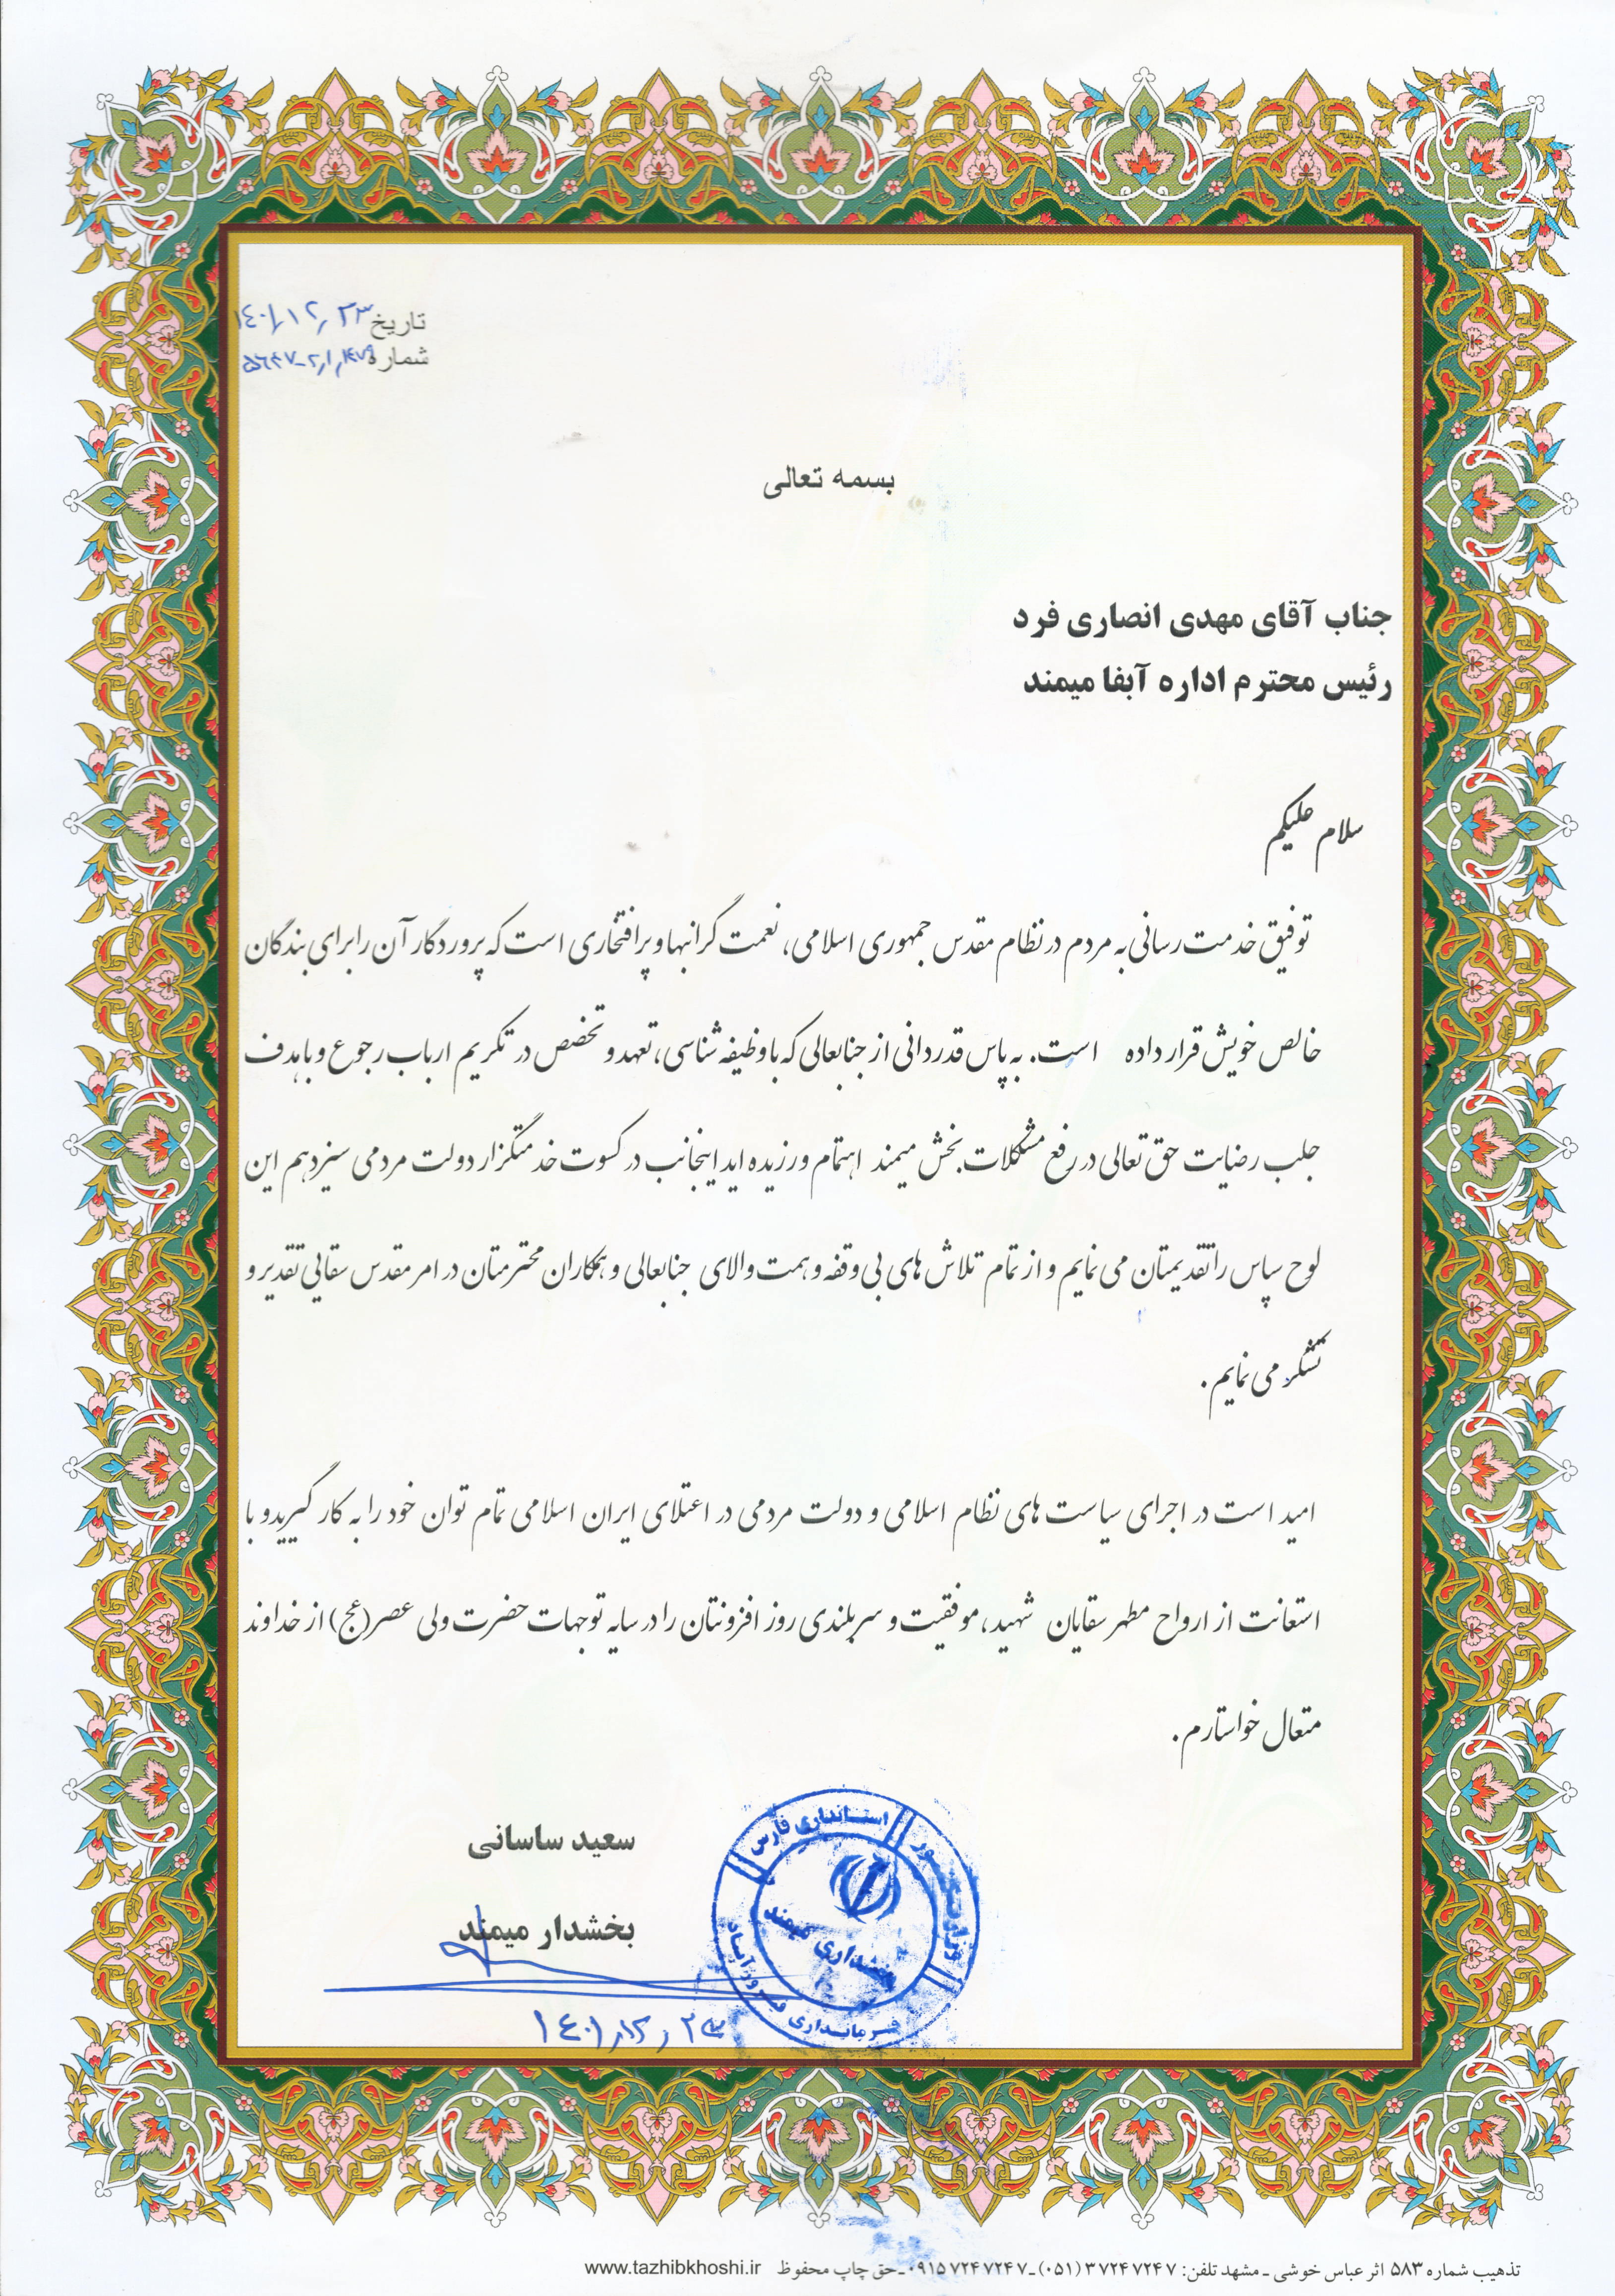 تاریخ ۱۴۰۱/۱۲/۲۳
شماره
بسمه تعالی
جناب آقای مهدی انصاری فرد
رئیس محترم اداره آبفا میمند
سلام علیکم
توفیق خدمت رسانی به مردم در نظام مقدس جمهوری اسلامی، نعمت گرانبها و پرافتخاری است که پروردگار آن را برای بندگان
خالص خویش قرار داده است. به پاس قدردانی از جنابعالی که با وظیفه شناسی، تعهد و تخصص در تکریم ارباب رجوع و با هدف
جلب رضایت حق تعالی در رفع مشکلات بخش میمند اهتمام ورزیده اید اینجانب در کسوت خدمتگزار دولت مردمی سیزدهم این
لوح سپاس را تقدیمتان می نمایم و از تمام تلاش های بی وقفه و همت والای جنابعالی و همکاران محترمتان در امر مقدس سقایی تقدیر و
تشکر می نمایم.
امید است در اجرای سیاست های نظام اسلامی و دولت مردمی در اعتلای ایران اسلامی تمام توان خود را به کار گیرید و با
استعانت از ارواح مطهر سقایان شهید، موفقیت و سربلندی روز افزونتان را در سایه توجهات حضرت ولی عصر (عج) از خداوند
متعال خواستارم.
سعید ساسانی
بخشدار میمند
۱۴۰۱/۱۲/۲۳
وزارت کشور
استانداری فارس
فرمانداری فیروزآباد
بخشداری میمند
تذهیب شماره ۵۸۳ اثر عباس خوشی ـ مشهد تلفن: ۳۷۲۴۷۲۴۷ (۰۵۱) ـ ۰۹۱۵۷۲۴۷۲۴۷ ـ حق چاپ محفوظ www.tazhibkhoshi.ir